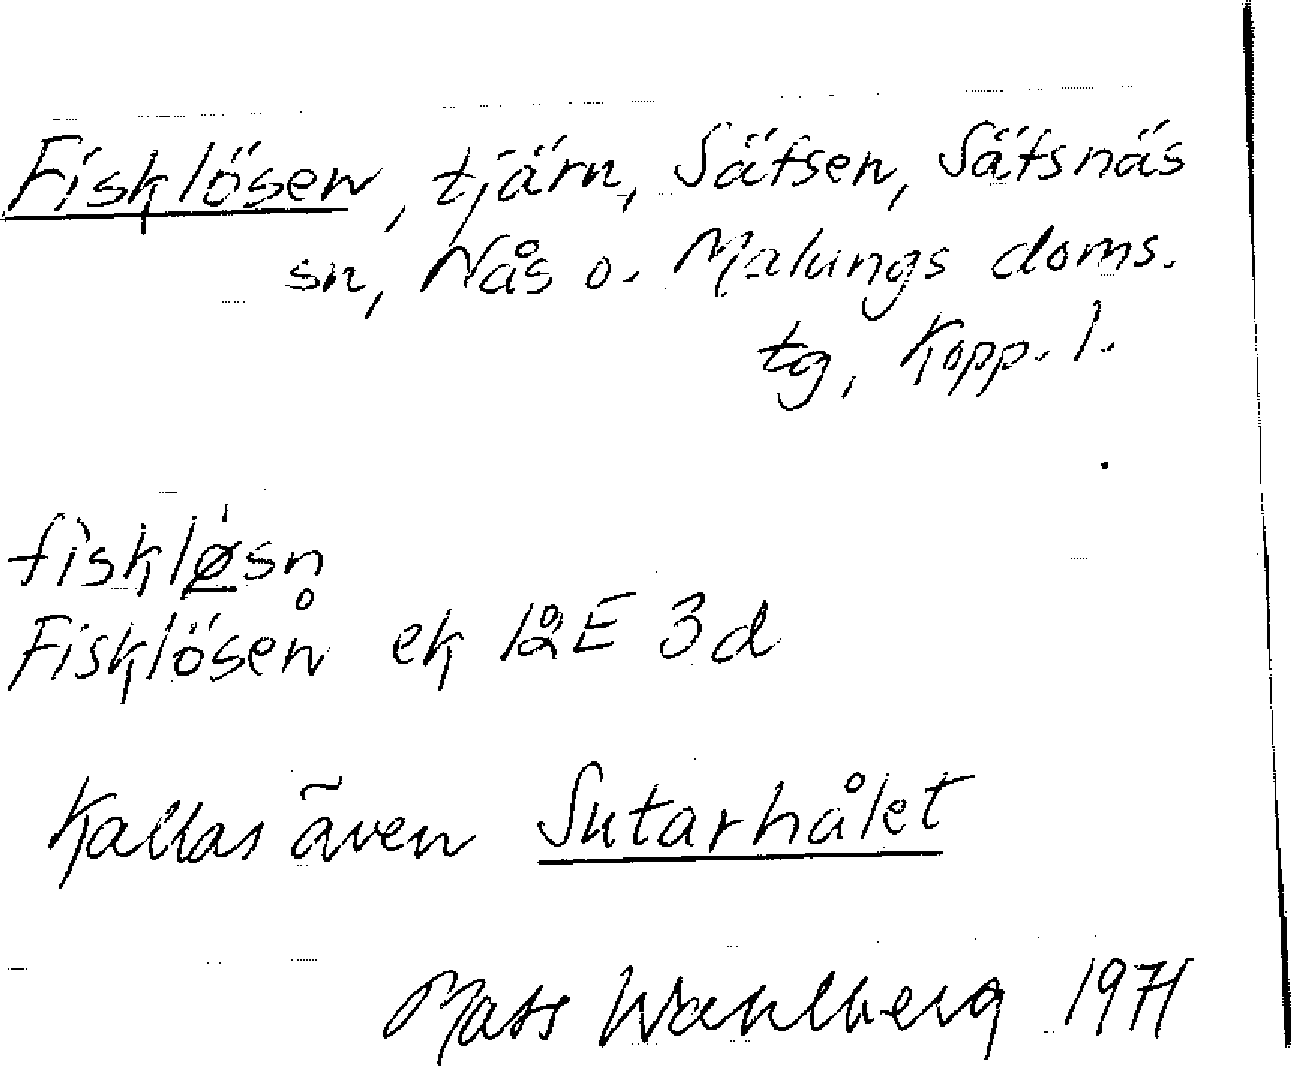 Fisklösen, tjärn, Säfsen, Säfsnäs
sn, Nås o. Malungs doms.
tg, Kopp. l.
fiskløsn̥
Fisklösen ek 12E 3d
Kallas även Sutarhålet
Mats Wahlberg 1971